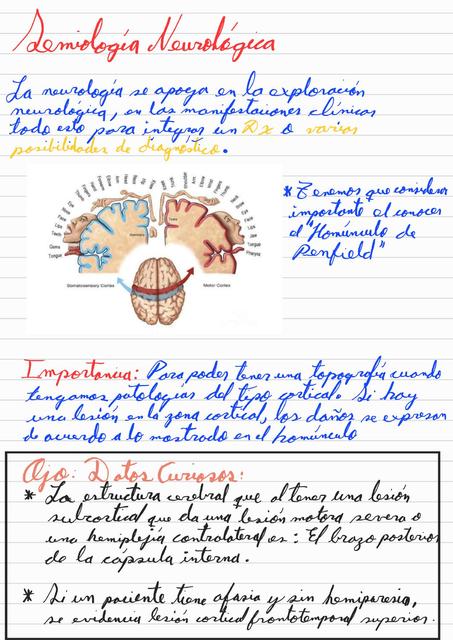 Semiología Neurológica
La neurología se apoya en la exploración
neurológica, en las manifestaciones clínicas
todo esto para integrar un Dx o varias
posibilidades de diagnóstico.
* Tenemos que considerar
importante el conocer
el "Homúnculo de
Penfield"
Gums
Tongue
Tongue
Pharynx
Somatosensory Cortex
Motor Cortex
Importancia: Para poder tener una topografía cuando
tengamos patologías del tipo cortical. Si hay
una lesión en la zona cortical, los daños se expresan
de acuerdo a lo mostrado en el homúnculo
Ojo: Datos Curiosos:
* La estructura cerebral que al tener una lesión
subcortical que da una lesión motora severa o
una hemiplejía contralateral es: El brazo posterior
de la cápsula interna.
* Si un paciente tiene afasia y sin hemiparesia,
se evidencia lesión cortical frontotemporal superior.